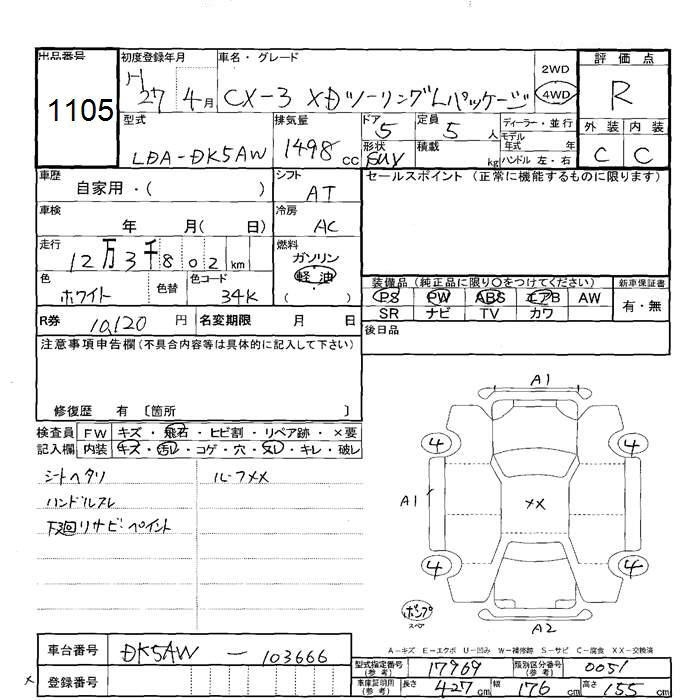 出品番号 1105
初度登録年月 H27年 4月
車名・グレード CX-3 XDツーリングLパッケージ
2WD
4WD
評価点 R
外装 内装
C C
型式 LDA-DK5AW
排気量 1498 CC
ドア 5
形状 SUV
定員 5 人
積載 kg
ディーラー・並行
モデル年式 年
ハンドル 左・右
車歴 自家用・( )
シフト AT
セールスポイント (正常に機能するものに限ります)
車検 年 月( 日)
冷房 AC
走行 12万3千802 km
燃料
ガソリン
軽油
( )
色 ホワイト 色替
色コード 34K
装備品 (純正品に限り○をつけてください) 新車保証書
PS PW ABS エアB AW 有・無
SR ナビ TV カワ
R券 10,120 円 名変期限 月 日
後日品
注意事項申告欄 (不具合内容等は具体的に記入して下さい)
修復歴 有 〔箇所 〕
検査員 FW キズ・飛石・ヒビ割・リペア跡・×要
記入欄 内装 キズ・汚レ・コゲ・穴・スレ・キレ・破レ
シートヘタリ ルーフXX
ハンドルスレ
下廻リサビ・ペイント
A1
4 4
A1 XX
4 4
ポンプ
スペア
A2
A-キズ E-エクボ U-凹み W-補修跡 S-サビ C-腐食 XX-交換済
車台番号 DK5AW - 103666
× 登録番号
型式指定番号 (参考) 17969 類別区分番号 (参考) 0051
車庫証明用 (参考) 長さ 427 cm 幅 176 cm 高さ 155 cm